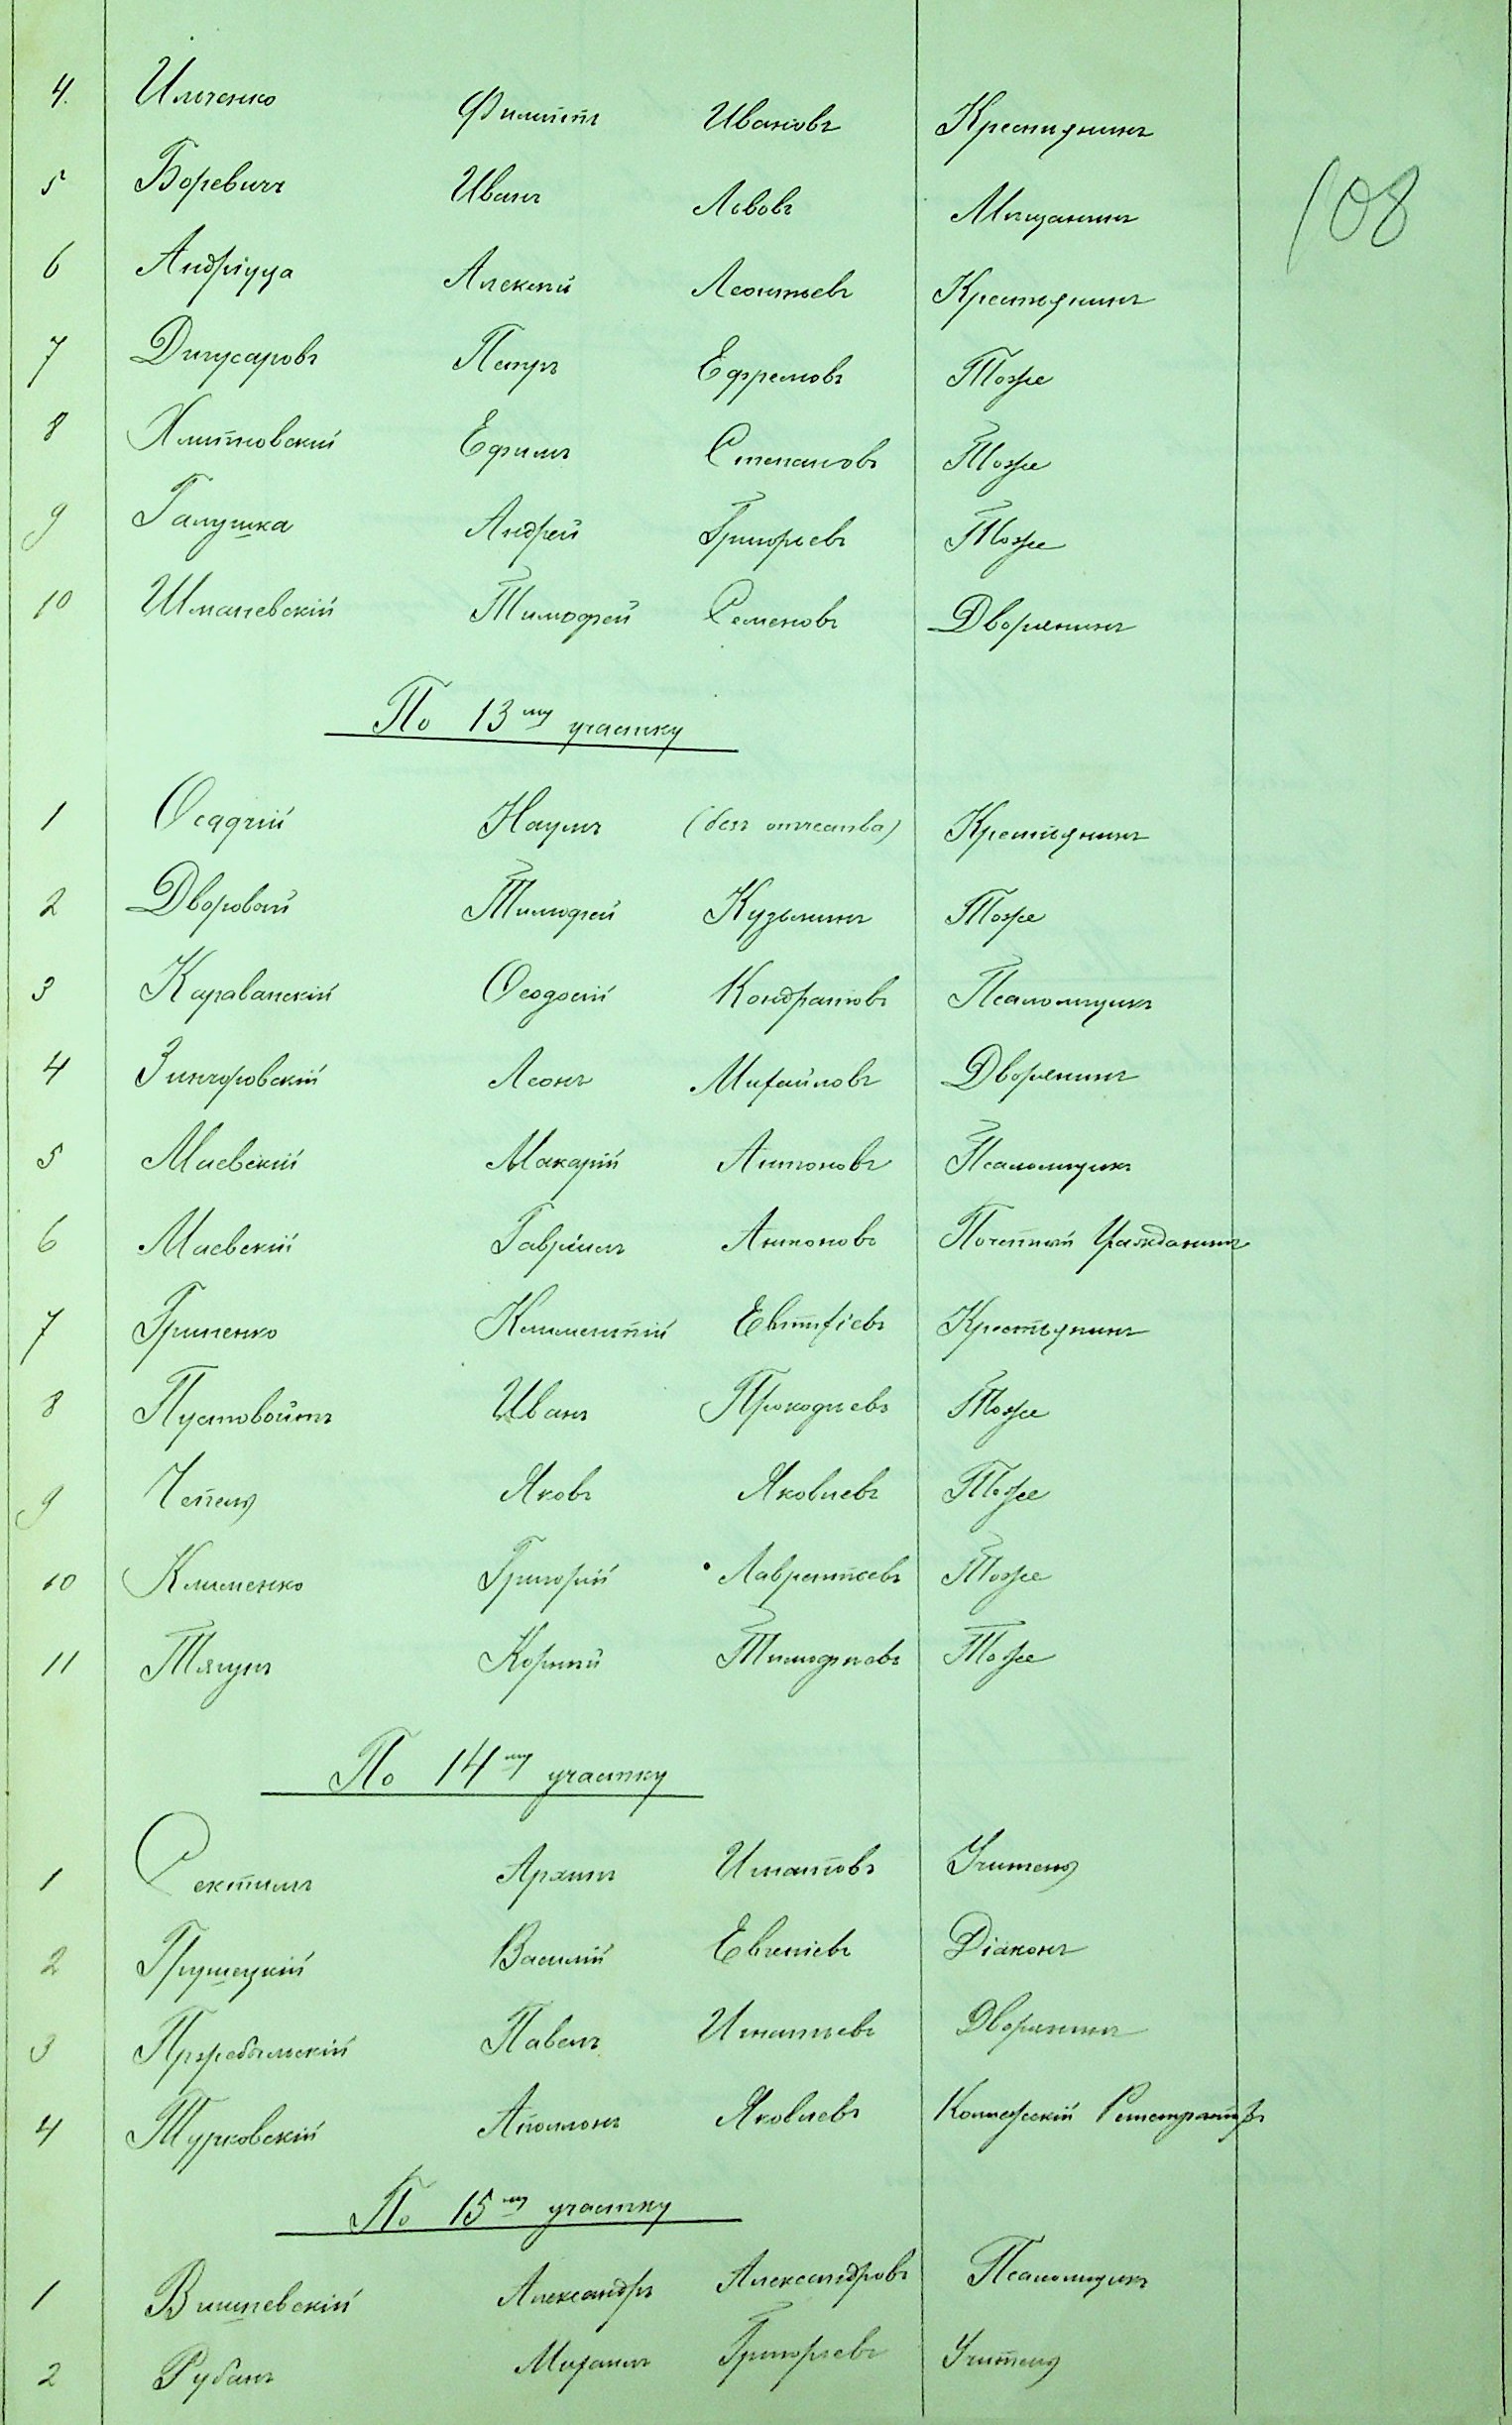 4. Ильченко Филиппъ Ивановъ Крестьянинъ
5 Боревичъ Иванъ Львовъ Мѣщанинъ
108
6 Андріуца Алексѣй Леонтьевъ Крестьянинъ
7 Дигусаровъ Петръ Ефремовъ Тоже
8 Хмѣлевскій Ефимъ Степановъ Тоже
9 Галушка Андрей Григорьевъ Тоже
10 Шманевскій Тимофей Семеновъ Дворянинъ
По 13му участку
1 Осадчій Наумъ (безъ отчества) Крестьянинъ
2 Дворовой Тимофей Кузьминъ Тоже
3 Караванскій Ѳеодосій Кондратовъ Псаломщикъ
4 Зингоровскій Леонъ Михайловъ Дворянинъ
5 Маевскій Макарій Антоновъ Псаломщикъ
6 Маевскій Гавріилъ Антоновъ Почетный Гражданинъ
7 Гриненко Климентій Евтихіевъ Крестьянинъ
8 Пустовойтъ Иванъ Прокофьевъ Тоже
9 Чепель Яковъ Яковлевъ Тоже
10 Клименко Григорій Лаврентьевъ Тоже
11 Тягунъ Корнѣй Тимофѣевъ Тоже
По 14му участку
1 Архипъ Игнатовъ Учитель
2 Грушецкій Василій Евгеніевъ Діаконъ
3 Пржебыльскій Павелъ Игнатьевъ Дворянинъ
4 Турковскій Аполлонъ Яковлевъ Коллежскій Регистраторъ
По 15му участку
1 Вишневскій Александръ Александровъ Псаломщикъ
2 Рубанъ Михаилъ Григорьевъ Учитель